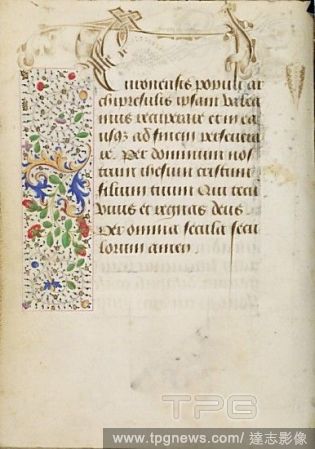 Turonensis populi ar
chipresulis ipsam valea
mus recuperare et in ea
usq; ad finem persevera
re. Per dominum nos
trum ihesum cristum
filium tuum Qui tecu
vivis et regnas deus.
Per omnia secula secu
lorum amen
TPG
www.tpgnews.com/ 達志影像